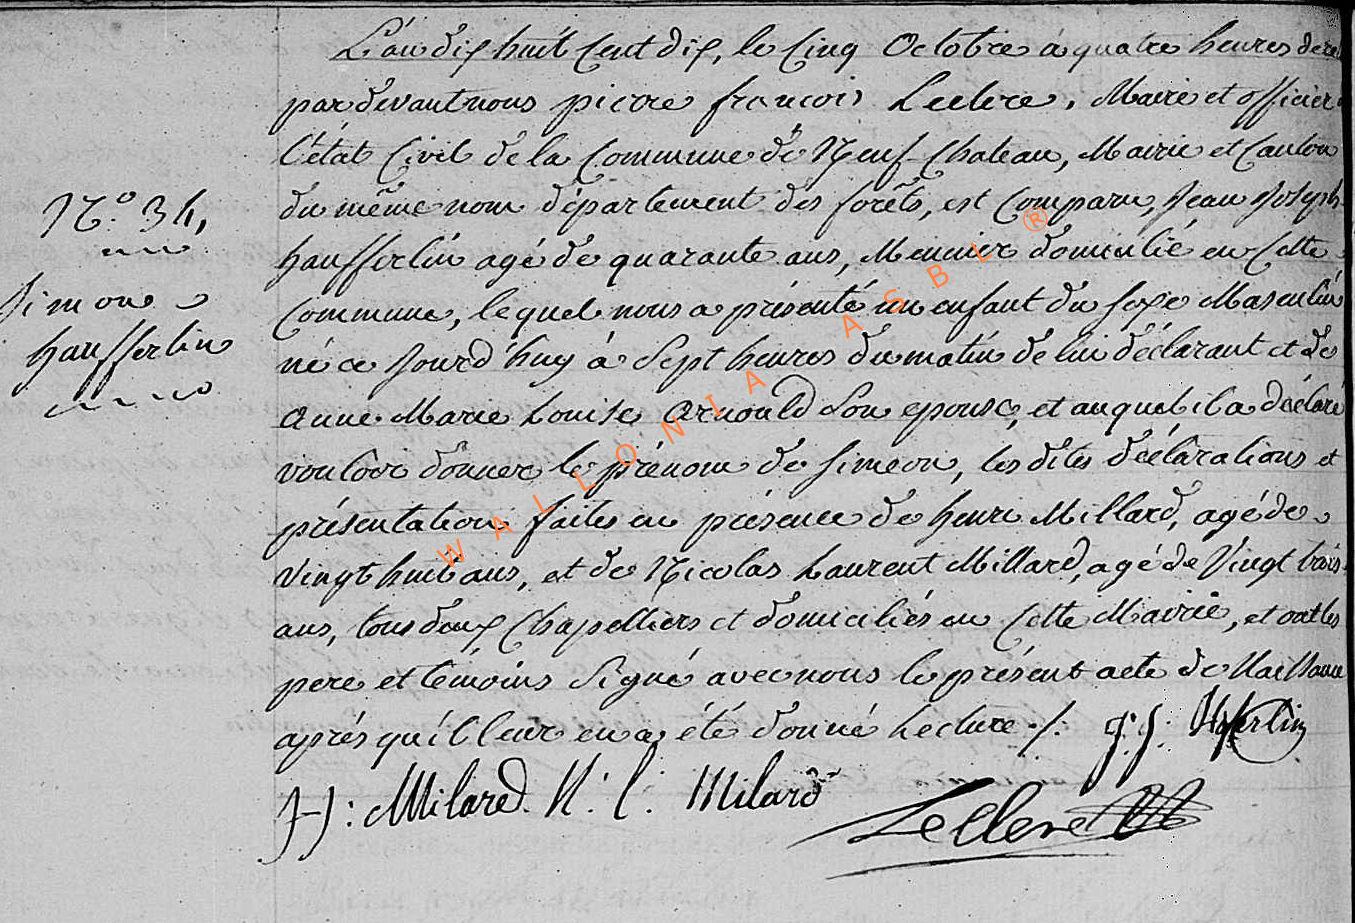 L'an dix huit Cent dix, le Cinq Octobre à quatre heures de re
par devant nous pierre francois Leclere, Maire et officier
L'état Civil de la Commune de Neuf-Chateau, Mairie et Canton
du même nom département des forêts, est Comparu, Jean Joseph
haufferlin agé de quarante ans, Meunier domicilié en Cette
Commune, lequel nous a présenté un enfant du sexe Masculin
né ce Jourd'huy à Sept heures du matin de lui déclarant et de
Anne Marie Louise Arnould Son epouse, et auquel il a déclaré
vouloir donner le prénom de Simeon, les dites déclarations et
présentation faites en présence de henri Millard, agé de
Vingt huit ans, et de Nicolas Laurent Millard, agé de Vingt trois
ans, tous deux Chapelliers et domiciliés en Cette Mairie, et ont les
pere et témoins Signé avec nous le présent acte de Naissance
après qu'il leur en a été donné Lecture ./.
J: J: Hferlin
H: Milard N. l. Milard
Leclere
N.o 34,
Simon
haufferlin
WALLONIA ASBL ®